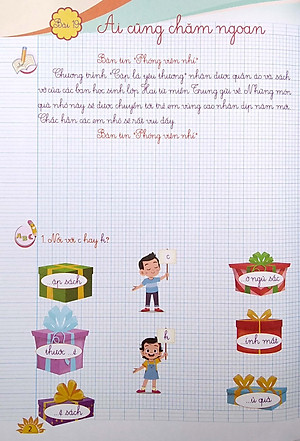 Bài 19
Ai cũng chăm ngoan
Bản tin "Phóng viên nhí"
Chương trình "Cặp lá yêu thương" nhận được quần áo và sách
vở của các bạn học sinh lớp Hai từ miền Trung gửi về. Những món
quà nhỏ này sẽ được chuyển tới trẻ em vùng cao nhân dịp năm mới.
Chắc hẳn các em nhỏ sẽ rất vui đấy.
Bản tin "Phóng viên nhí"
1. Nối với c hay k?
c
...ặp sách
...ò ngũ sắc
k
thước ...ẻ
...ính mắt
...ệ sách
...ủ quả
2